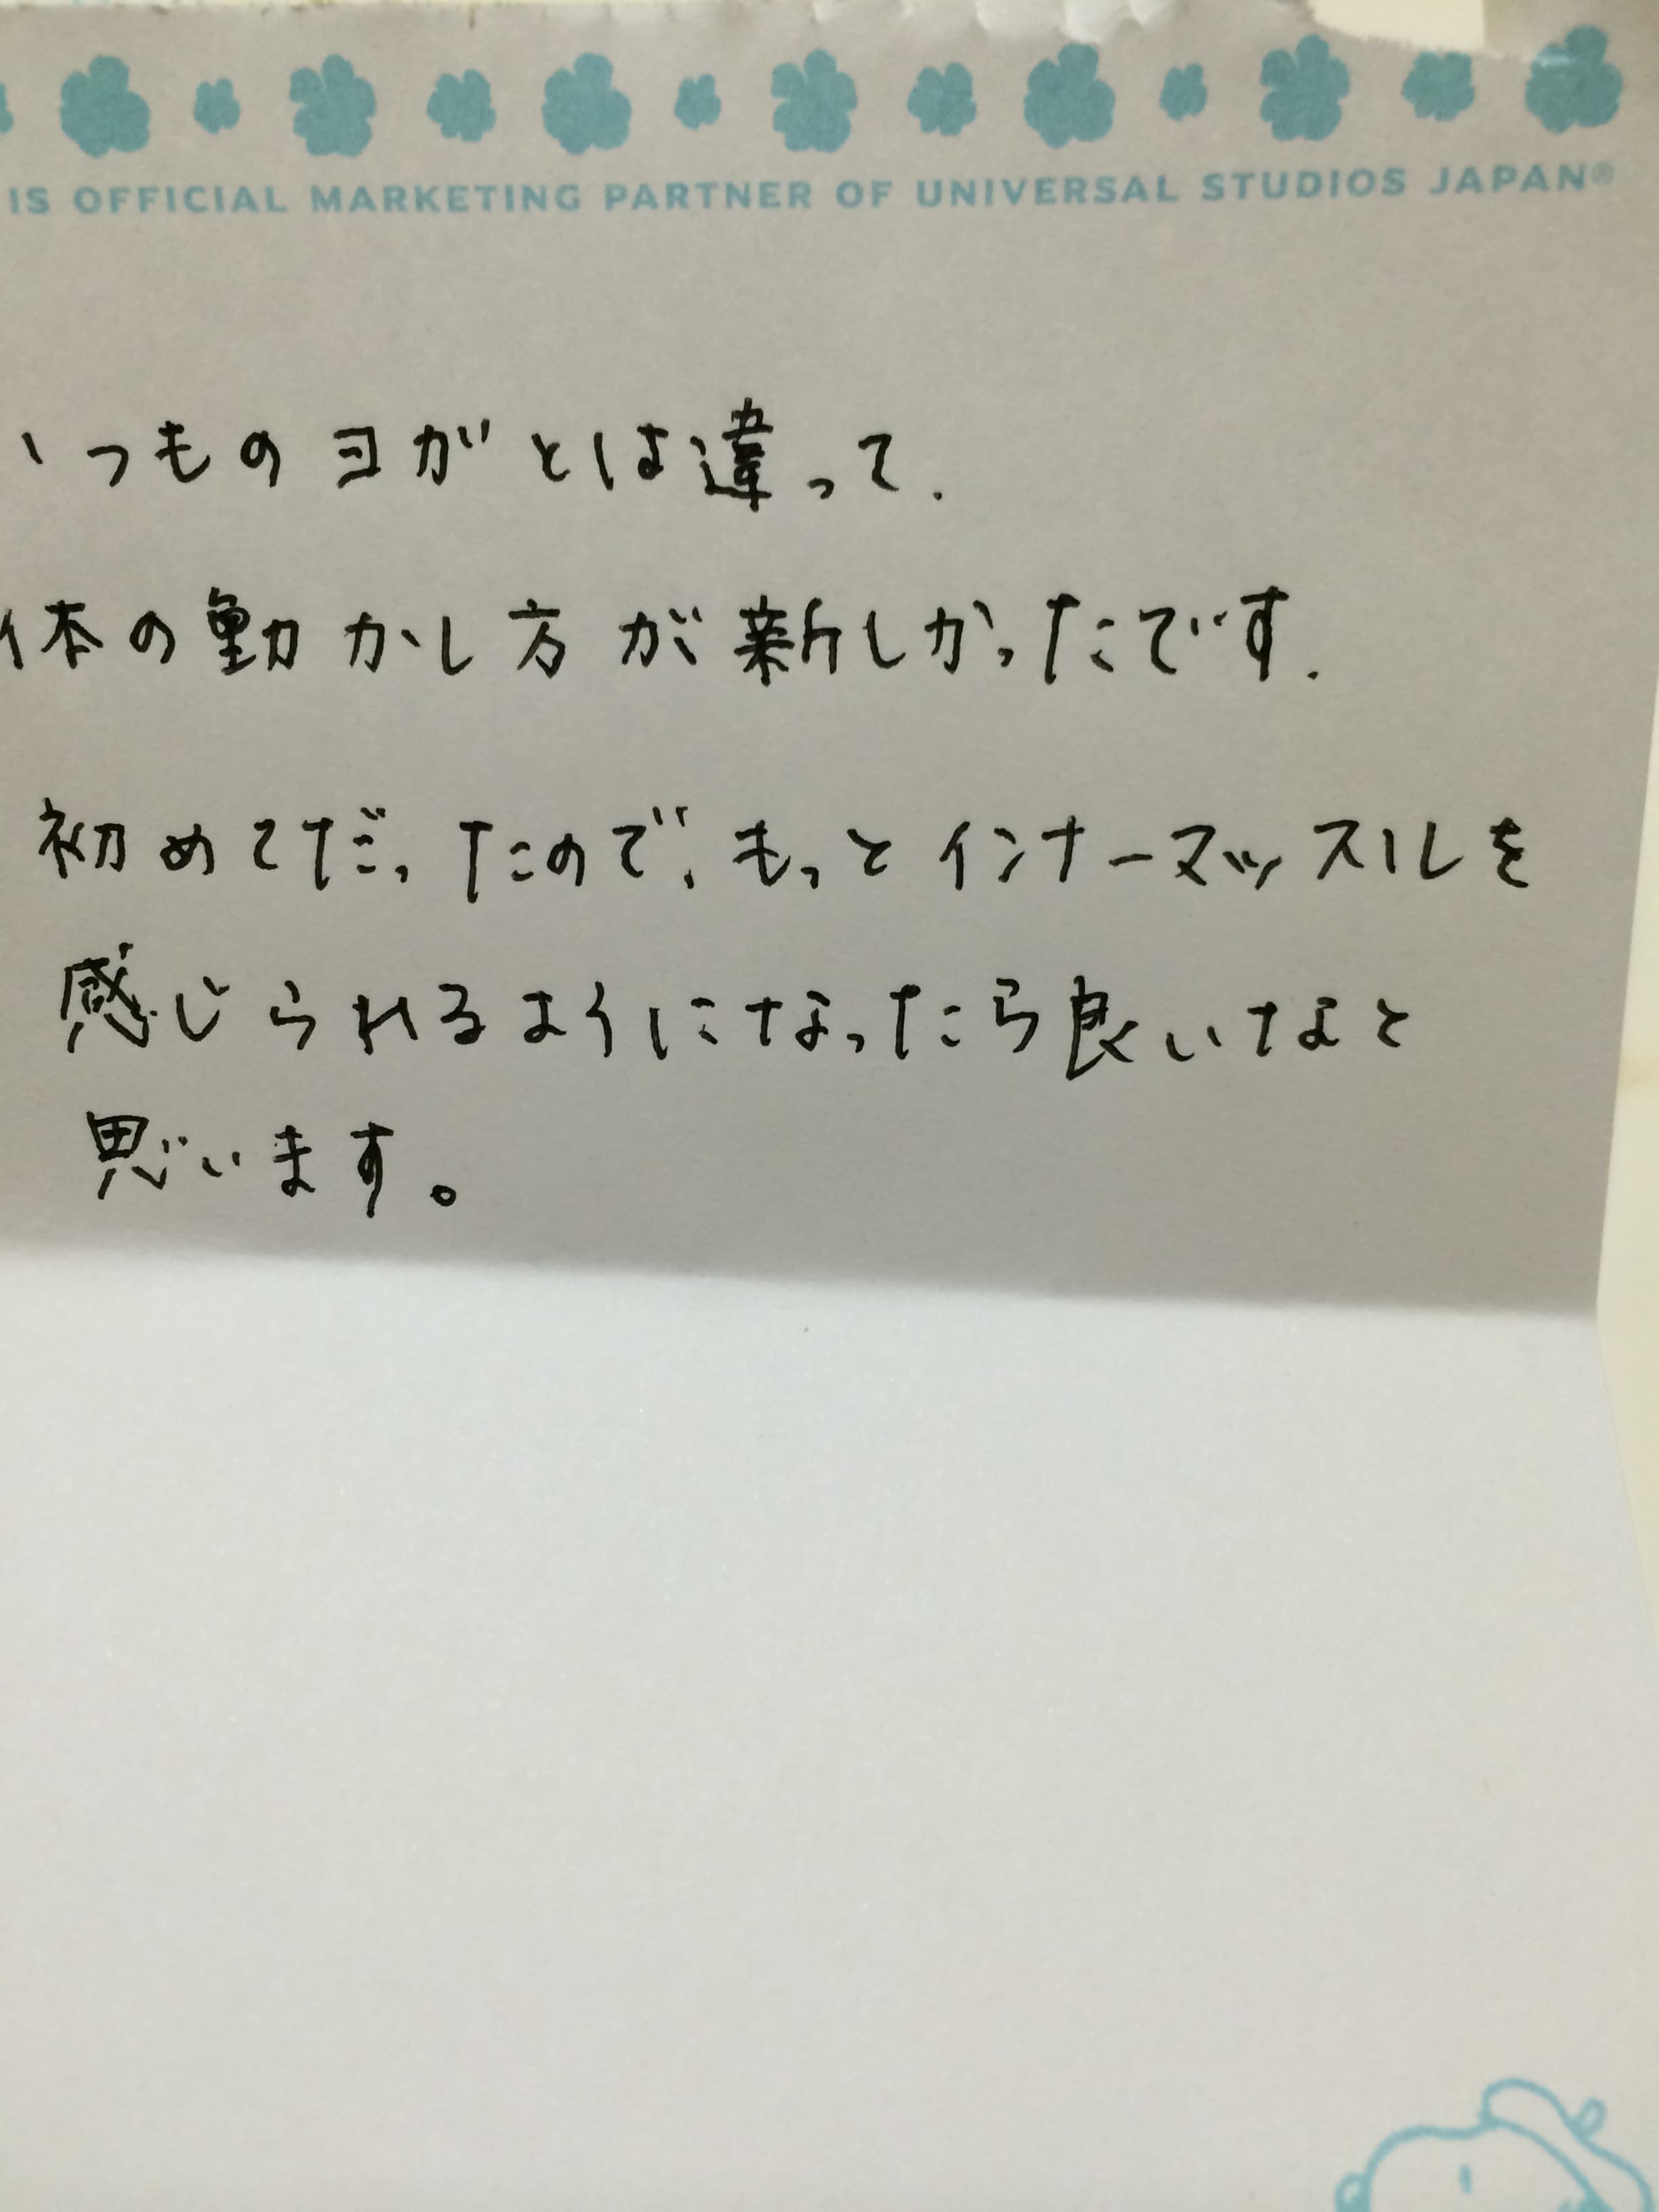 IS OFFICIAL MARKETING PARTNER OF UNIVERSAL STUDIOS JAPAN®
いつものヨガとは違って.
体の動かし方が新しかったです.
初めてだったので、もっとインナーマッスルを
感じられるようになったら良いなと
思います。